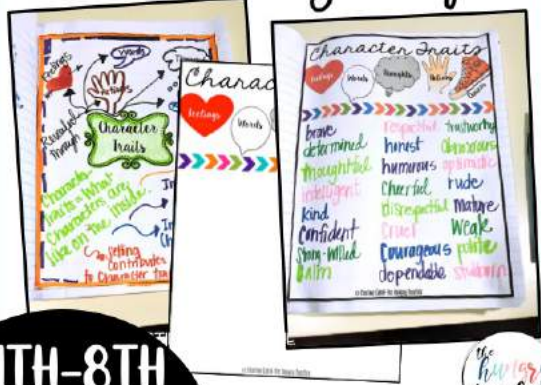 Feelings
Words
Actions
Revealed
Through
Character
Traits
Character
Traits = What
Characters are
like on the inside.
Setting
Contributes
to Character
Charac
Feelings
Words
Character Traits
Feelings
Words
Thoughts
Actions
brave
determined
thoughtful
intelligent
kind
Confident
Strong-willed
Calm
respectful
honest
humorous
Cheerful
disrespectful
Cruel
Courageous
dependable
trustworthy
obnoxious
optimistic
rude
Mature
Weak
polite
stubborn
TH-8TH
the